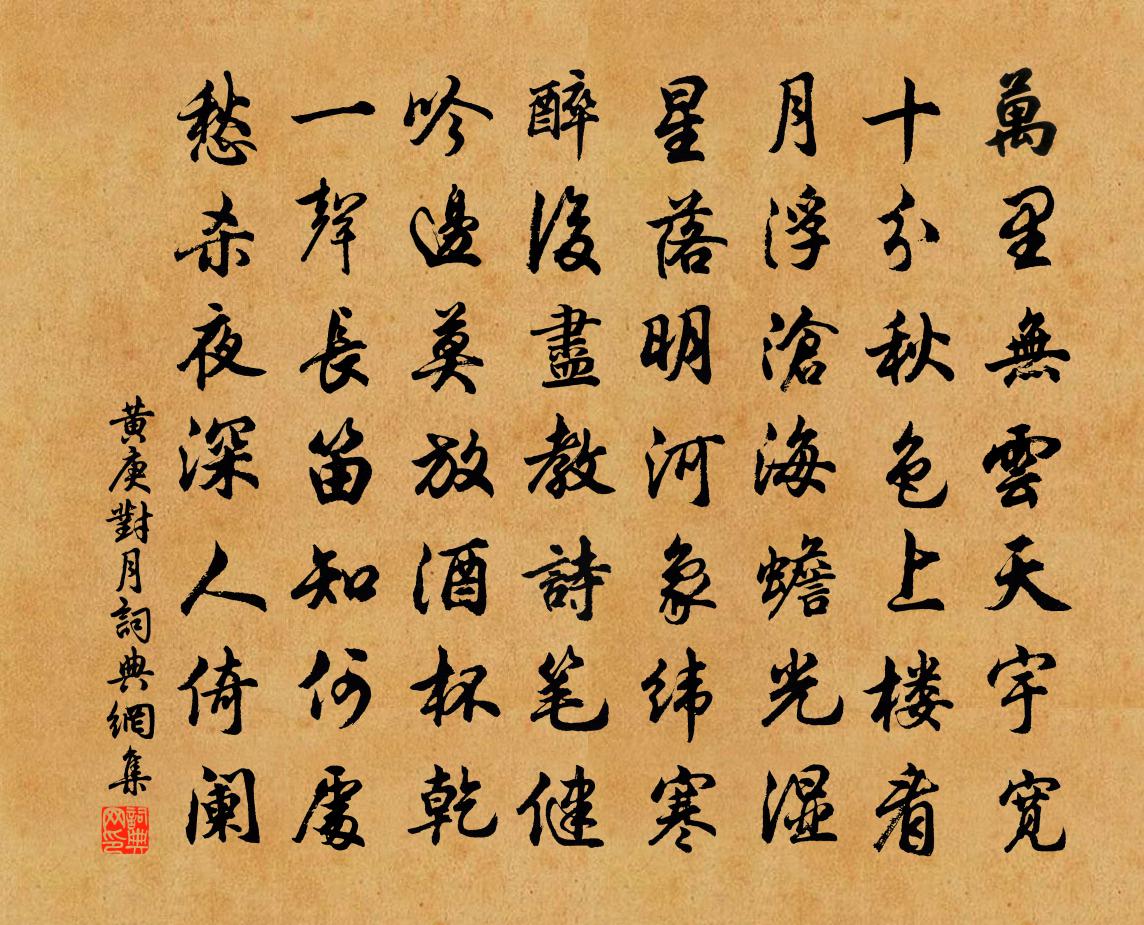 萬里無雲天宇寬
十分秋色上楼看
月浮滄海蟾光湿
星落明河象纬寒
醉後盡教詩笔健
吟邊莫放酒杯乾
一聲長笛知何處
愁杀夜深人倚阑
黄庚對月詞典網集
詞典网印